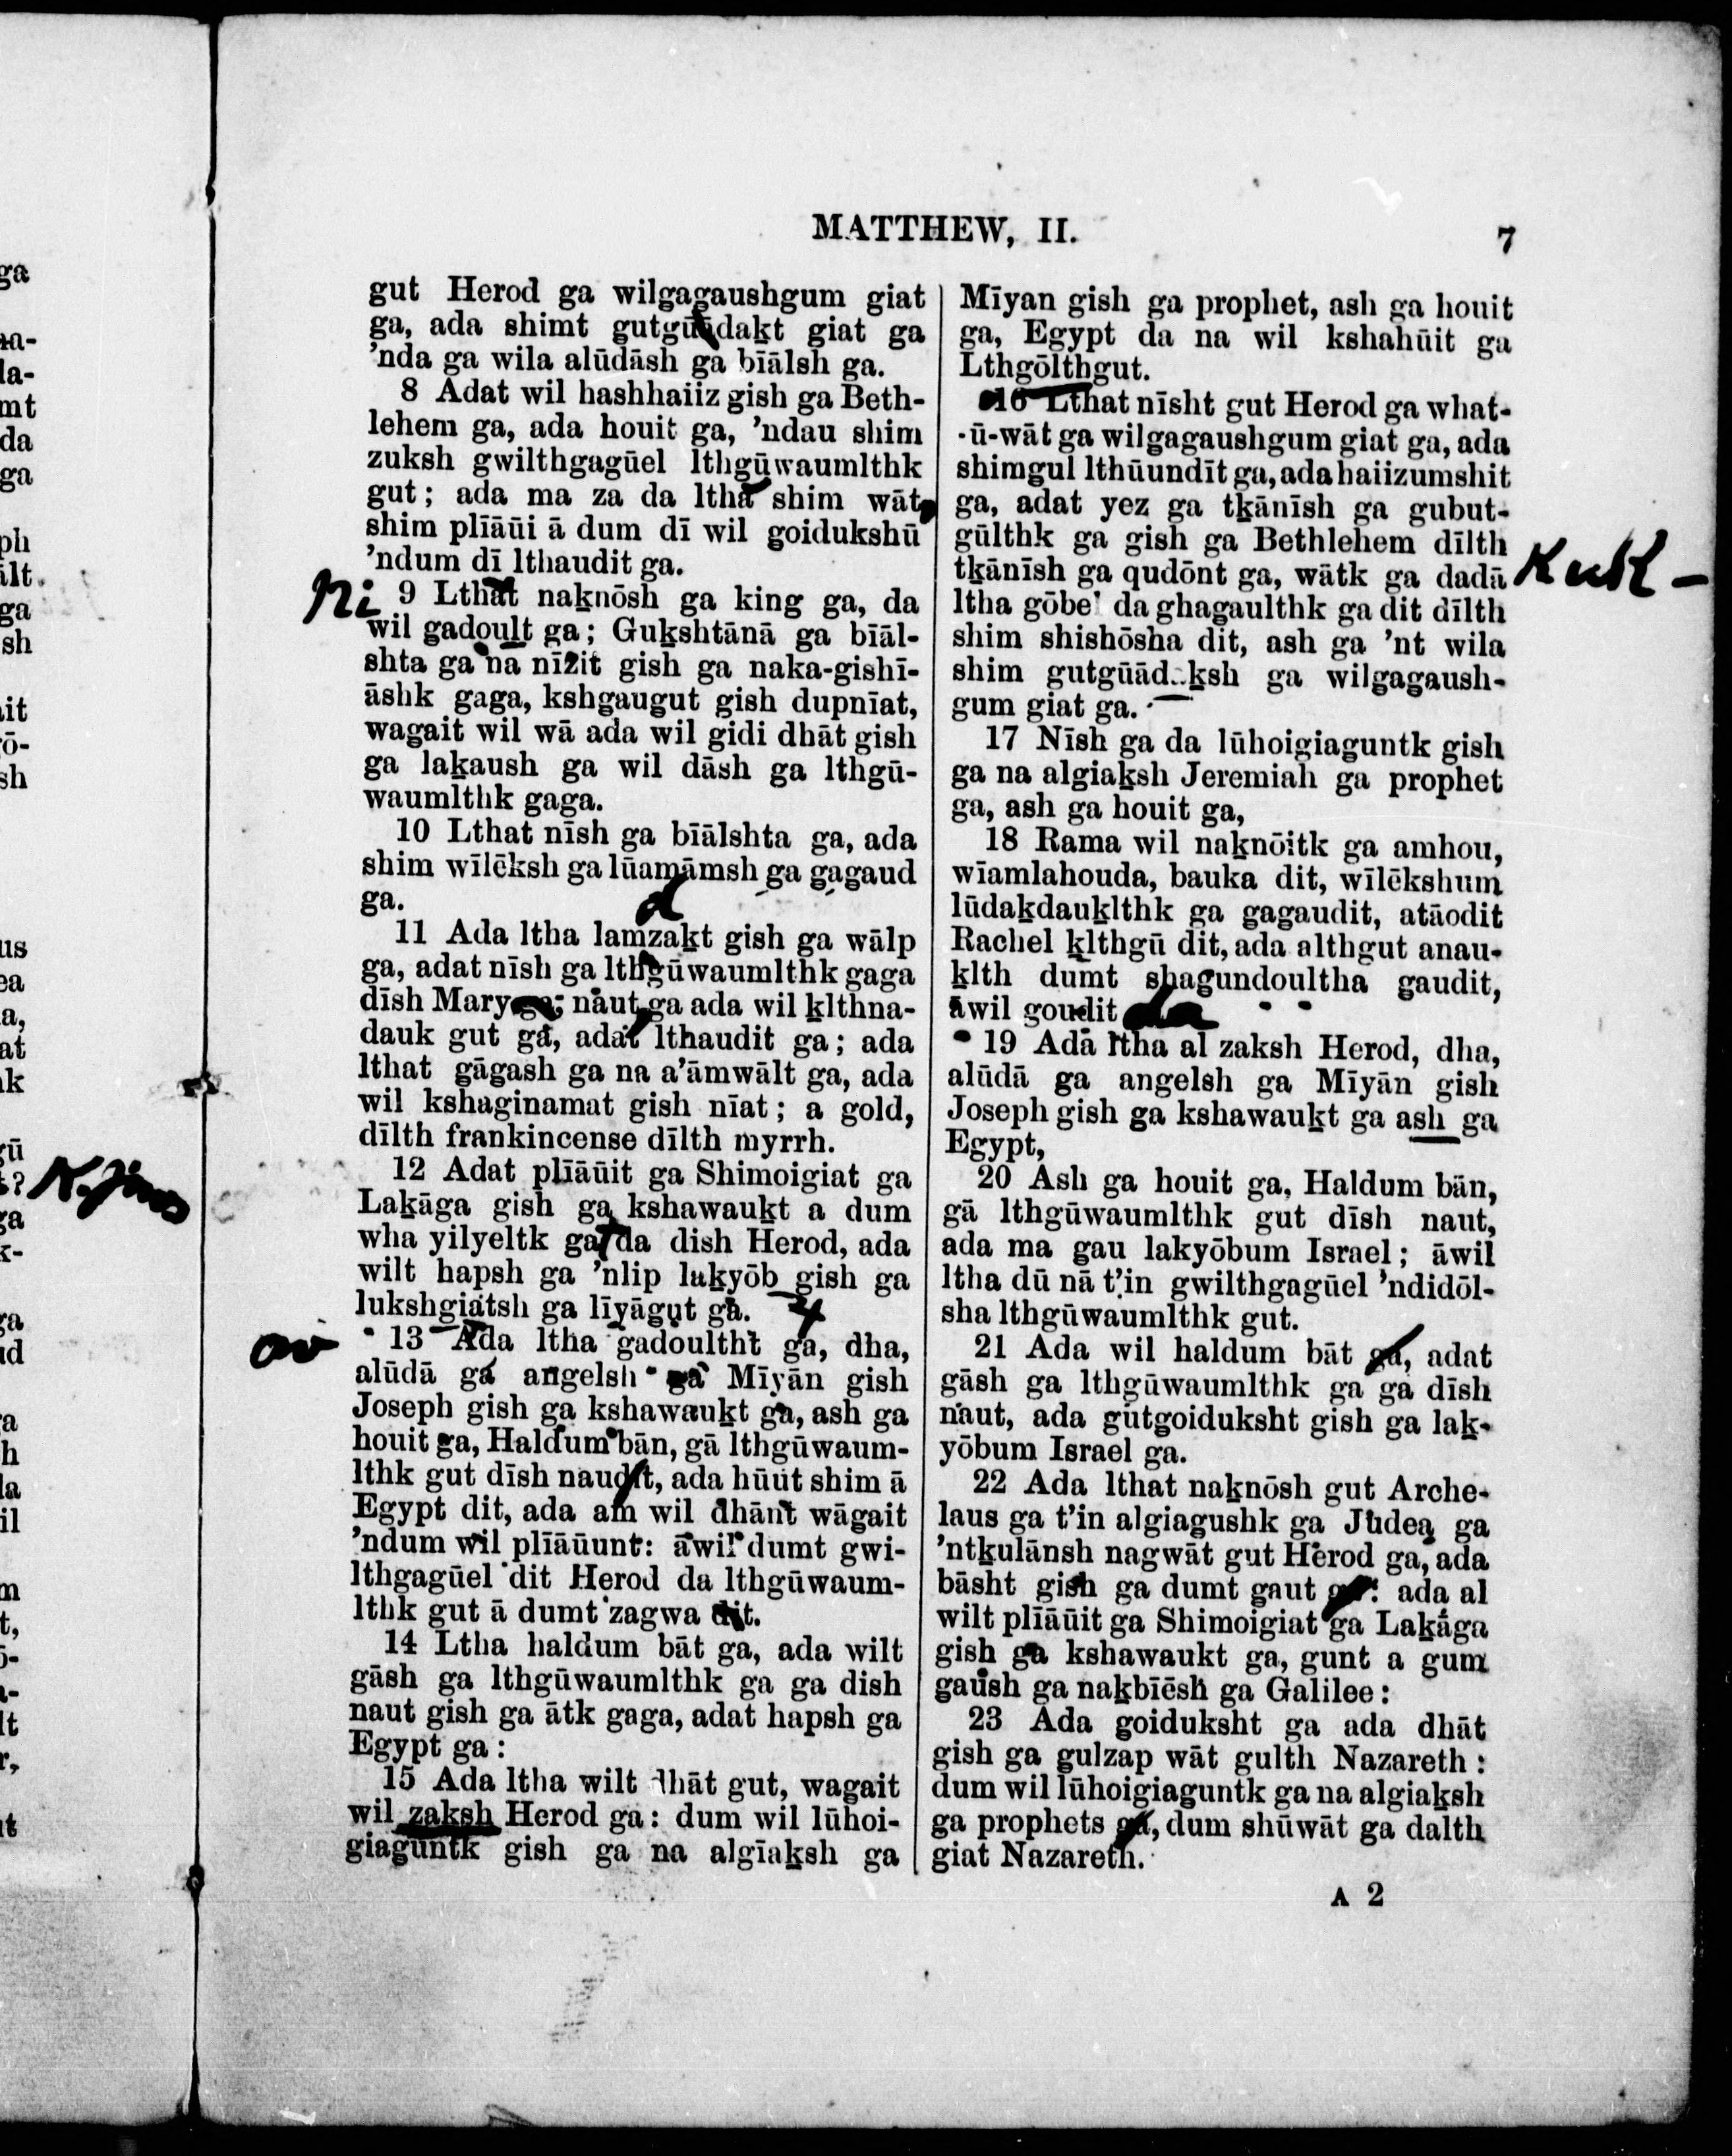 MATTHEW, II. 7
gut Herod ga wilgagaushgum giat
ga, ada shimt giat ga
’nda ga wila alūdāsh ga bīālsh ga.
8 Adat wil hashhaiiz gish ga Beth-
lehem ga, ada houit ga, ’ndau shim
zuksh gwilthgagūel lthgūwaumlthk
gut; ada ma za da ltha shim wāt
shim plīāūi ā dum dī wil goidukshū
’ndum dī lthaudit ga.
ni
9 Lthat naḵnōsh ga king ga, da
wil gadoult ga; Guḵshtānā ga bīāl-
shta ga na nīzit gish ga naka-gishī-
āshk gaga, kshgaugut gish dupnīat,
wagait wil wā ada wil gidi dhāt gish
ga laḵaush ga wil dāsh ga lthgū-
waumlthk gaga.
10 Lthat nīsh ga bīālshta ga, ada
shim wīlēksh ga lūamāmsh ga gagaud
ga.
d
11 Ada ltha lamzaḵt gish ga wālp
ga, adat nīsh ga lthgūwaumlthk gaga
dīsh Mary ga; naut ga ada wil ḵlthna-
dauk gut ga, adat lthaudit ga; ada
lthat gāgash ga na a’āmwālt ga, ada
wil kshaginamat gish nīat; a gold,
dīlth frankincense dīlth myrrh.
12 Adat plīāūit ga Shimoigiat ga
Laḵāga gish ga kshawauḵt a dum
wha yilyeltk ga da dish Herod, ada
wilt hapsh ga ’nlip laḵyōb gish ga
lukshgiatsh ga līyāgut ga.
13 Ada ltha gadoultht ga, dha,
alūdā ga angelsh ga Mīyān gish
Joseph gish ga kshawauḵt ga, ash ga
houit ga, Haldum bān, gā lthgūwaum-
lthk gut dīsh naudit, ada hūut shim ā
Egypt dit, ada am wil dhānt wāgait
’ndum wil plīāūunt: āwil dumt gwi-
lthgagūel dit Herod da lthgūwaum-
lthk gut ā dumt zagwa dit.
14 Ltha haldum bāt ga, ada wilt
gāsh ga lthgūwaumlthk ga ga dish
naut gish ga ātk gaga, adat hapsh ga
Egypt ga:
15 Ada ltha wilt dhāt gut, wagait
wil zaksh Herod ga: dum wil lūhoi-
giaguntk gish ga na algīaḵsh ga
Mīyan gish ga prophet, ash ga houit
ga, Egypt da na wil kshahūit ga
Lthgōlthgut.
16 Lthat nīsht gut Herod ga what-
-ū-wāt ga wilgagaushgum giat ga, ada
shimgul lthūundīt ga, ada haiizumshit
ga, adat yez ga tḵānīsh ga gubut-
gūlthk ga gish ga Bethlehem dīlth
tḵānīsh ga qudōnt ga, wātk ga dadā
ltha gōbel da ghagaulthk ga dit dīlth
shim shishōsha dit, ash ga ’nt wila
shim ga wilgagaush-
gum giat ga.
17 Nīsh ga da lūhoigiaguntk gish
ga na algiaḵsh Jeremiah ga prophet
ga, ash ga houit ga,
18 Rama wil naḵnōitk ga amhou,
wīamlahouda, bauka dit, wīlēkshum
lūdaḵdauḵlthk ga gagaudit, atāodit
Rachel ḵlthgū dit, ada althgut anau-
ḵlth dumt shagundoultha gaudit,
āwil goudit da
19 Ada ltha al zaksh Herod, dha,
alūdā ga angelsh ga Mīyān gish
Joseph gish ga kshawauḵt ga ash ga
Egypt,
20 Ash ga houit ga, Haldum bān,
gā lthgūwaumlthk gut dīsh naut,
ada ma gau lakyōbum Israel; āwil
ltha dū nā t’in gwilthgagūel ’ndidōl-
sha lthgūwaumlthk gut.
21 Ada wil haldum bāt ga, adat
gāsh ga lthgūwaumlthk ga ga dīsh
naut, ada gutgoiduksht gish ga laḵ-
yōbum Israel ga.
22 Ada lthat naḵnōsh gut Arche-
laus ga t’in algiagushk ga Judea ga
’ntḵulānsh nagwāt gut Herod ga, ada
bāsht gish ga dumt gaut ga: ada al
wilt plīāūit ga Shimoigiat ga Laḵāga
gish ga kshawaukt ga, gunt a gum
gaush ga naḵbīēsh ga Galilee:
23 Ada goiduksht ga ada dhāt
gish ga gulzap wāt gulth Nazareth:
dum wil lūhoigiaguntk ga na algiaḵsh
ga prophets ga, dum shūwāt ga dalth
giat Nazareth.
A 2